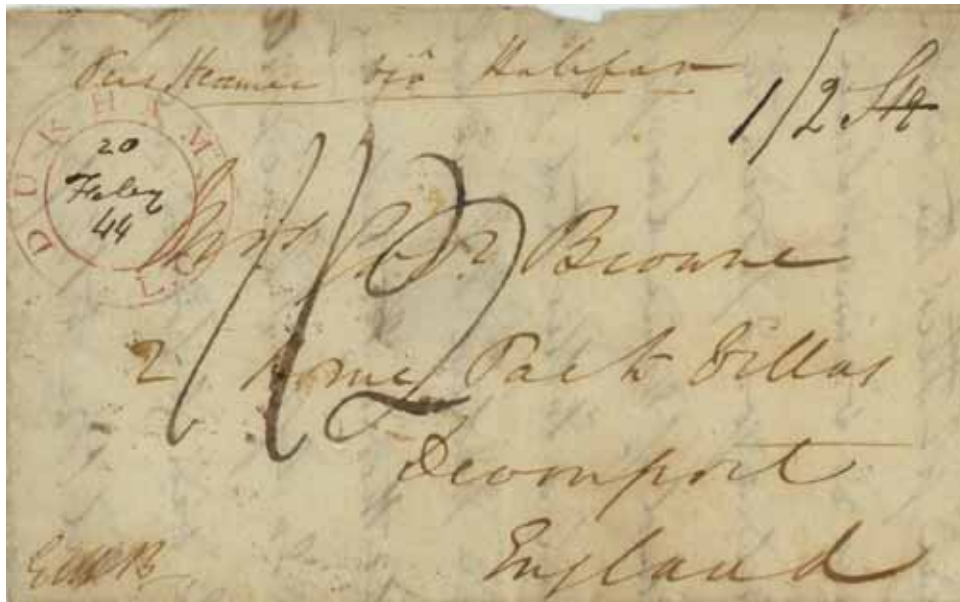 Per Steamer via Halifax
1/2 Stg
DURHAM L.C
20
Feby
44
1/2
Browne
2 Home Park Villas
Devonport
England